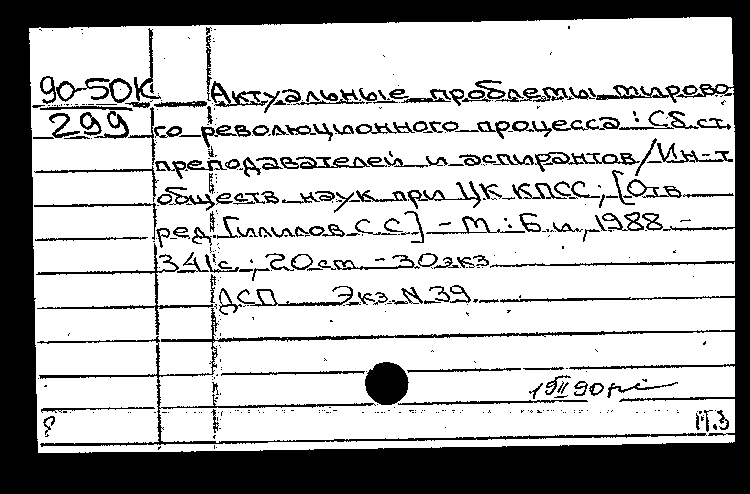 90-50К Актуальные проблемы мирово
299 го революционного процесса : Сб.ст.
преподавателей и аспирантов / Ин-т
обществ. наук при ЦК КПСС ; [Отв.
ред. Гилилов С.С.] - М. : Б.и., 1988. -
341с. ; 20 см. - 30 экз.
ДСП. Экз. N 39.
19 II 90
М.З